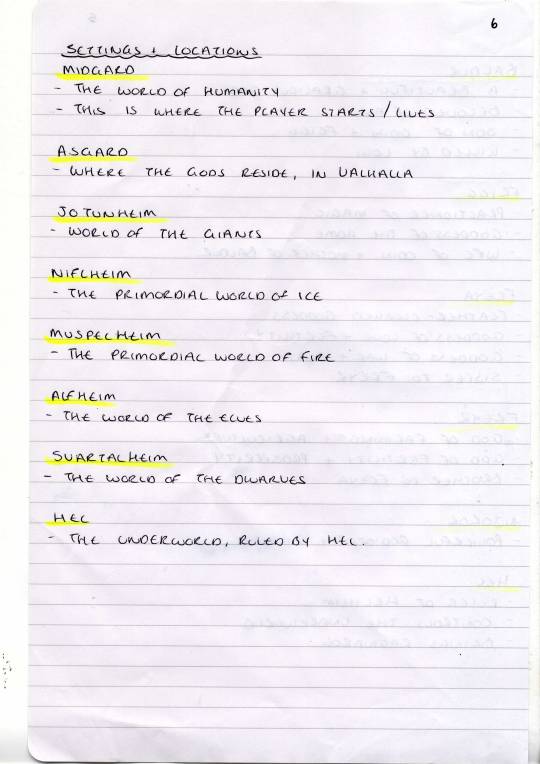 6
SETTINGS + LOCATIONS
MIDGARD
- THE WORLD OF HUMANITY
- THIS IS WHERE THE PLAYER STARTS / LIVES
ASGARD
- WHERE THE GODS RESIDE, IN VALHALLA
JOTUNHEIM
- WORLD OF THE GIANTS
NIFLHEIM
- THE PRIMORDIAL WORLD OF ICE
MUSPELHEIM
- THE PRIMORDIAL WORLD OF FIRE
ALFHEIM
- THE WORLD OF THE ELVES
SVARTALHEIM
- THE WORLD OF THE DWARVES
HEL
- THE UNDERWORLD, RULED BY HEL.